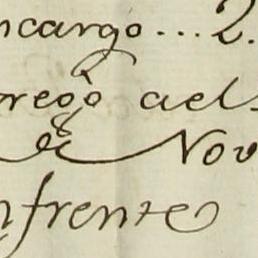 ncargo...2.
regò del
de Nov
nfrente